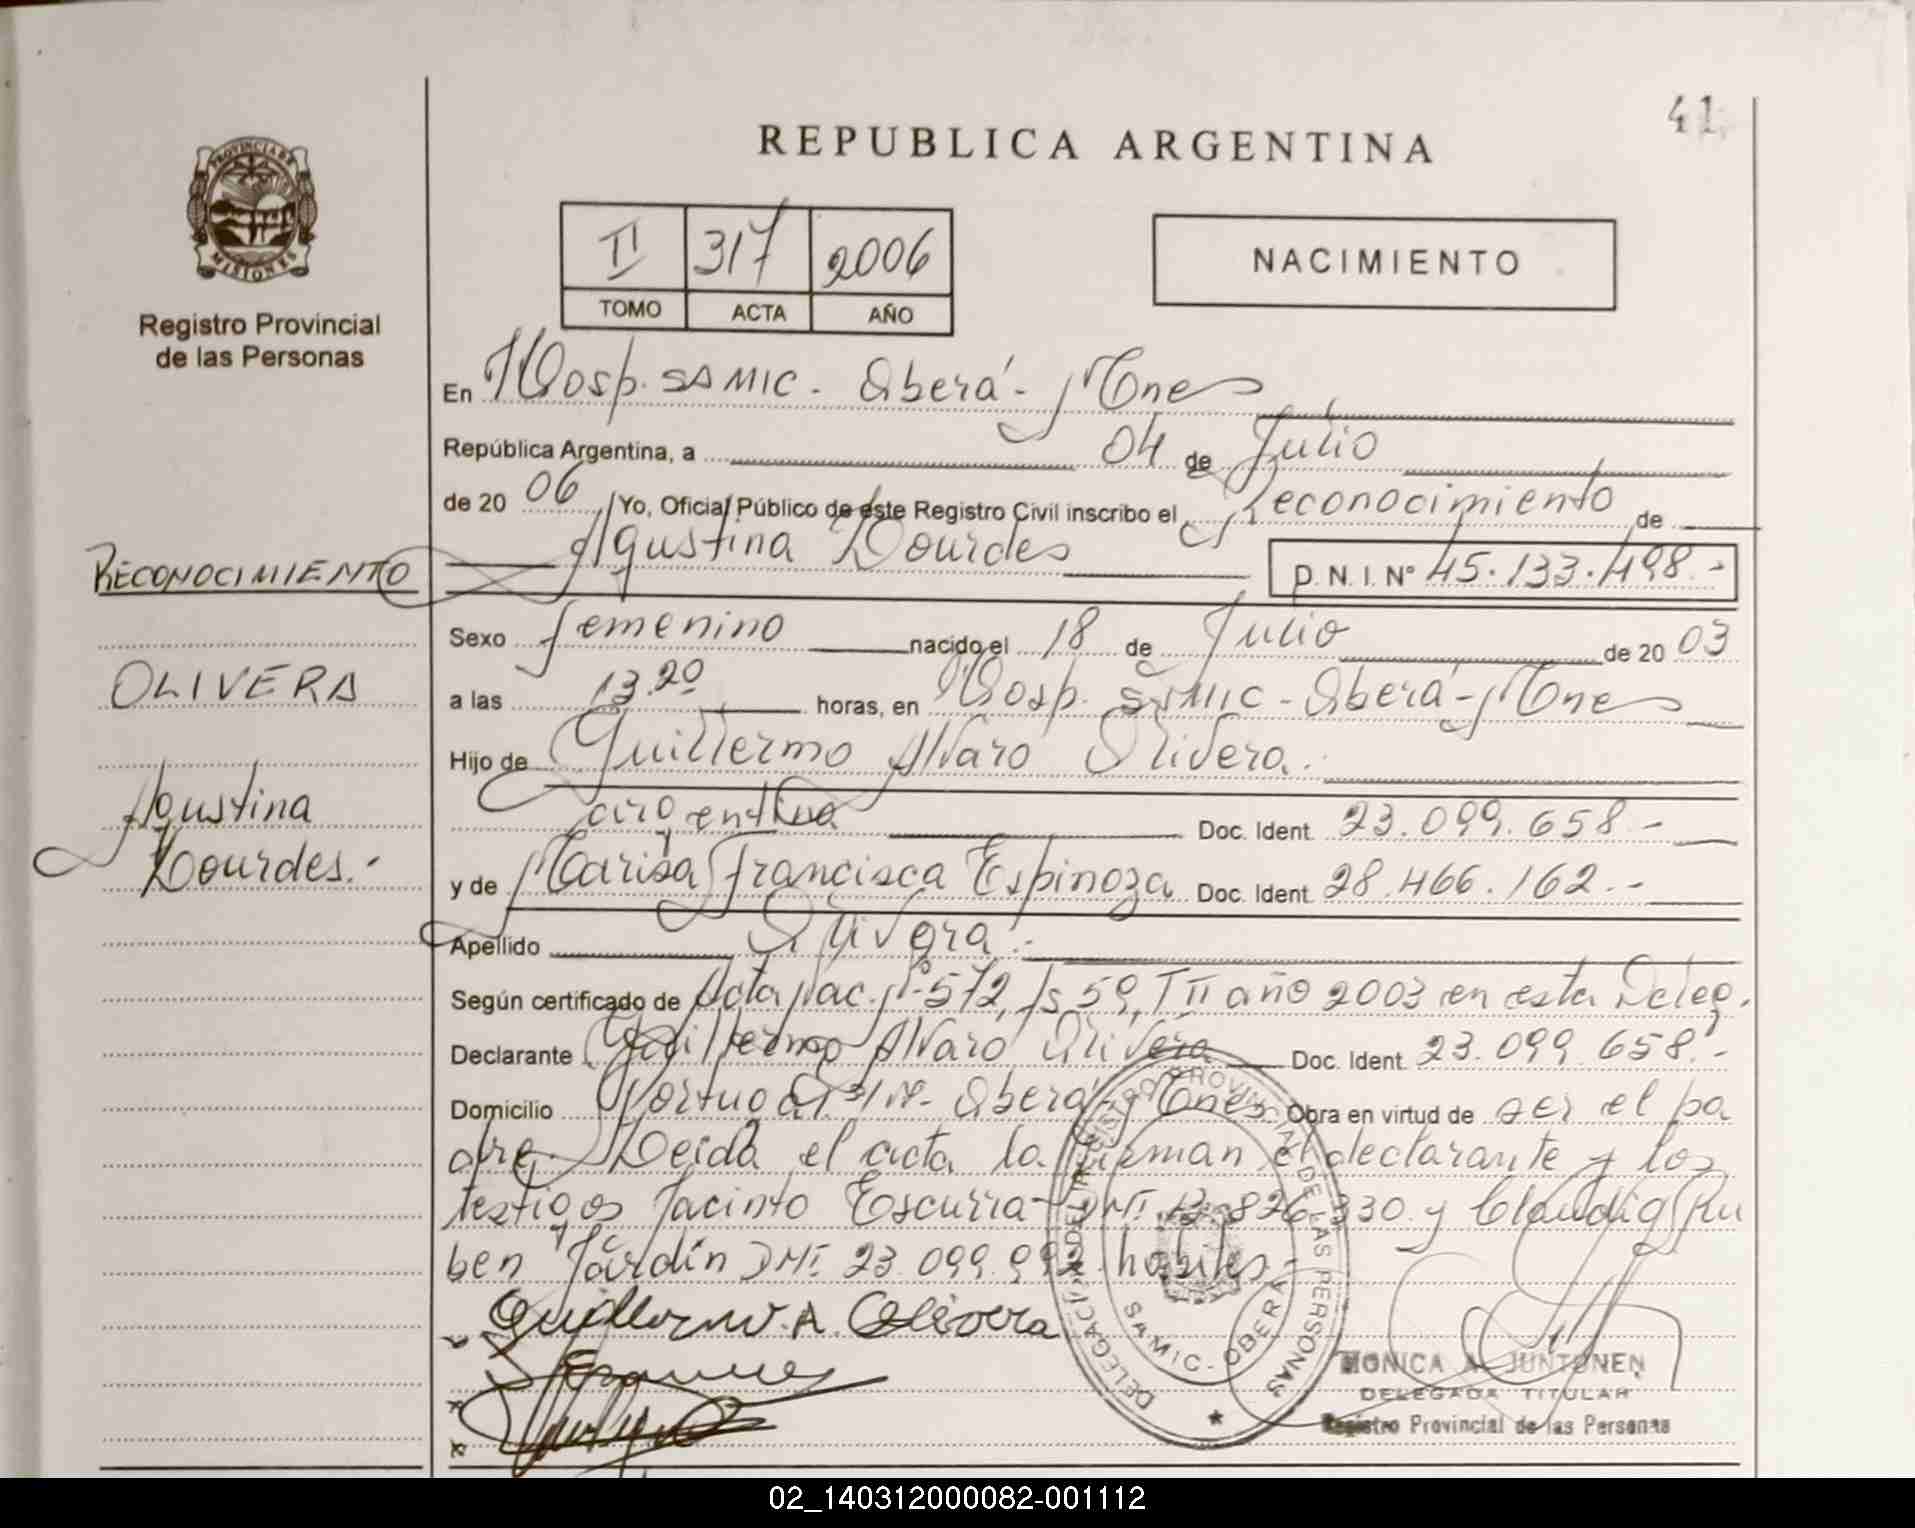 41
REPUBLICA ARGENTINA
PROVINCIA DE
MISIONES
Registro Provincial
de las Personas
II 317 2006
TOMO ACTA AÑO
NACIMIENTO
En Hosp. SAMIC - Oberá - Mnes
República Argentina, a 04 de Julio
de 20 06 Yo, Oficial Público de este Registro Civil inscribo el Reconocimiento de
Agustina Lourdes D.N.I. Nº 45.133.498.-
RECONOCIMIENTO
Sexo femenino nacido el 18 de Julio de 20 03
OLIVERA
a las 13.20 horas, en Hosp. SAMIC - Oberá - Mnes
Hijo de Guillermo Alvaro Olivera.
argentina Doc. Ident. 23.099.658.-
Agustina
Lourdes.-
y de Marisa Francisca Espinoza Doc. Ident. 28.466.162.-
Apellido Olivera.-
Según certificado de Acta Nac. Nº 572, fs 59, T II año 2003 en esta Deleg.
Declarante Guillermo Alvaro Olivera Doc. Ident. 23.099.658.-
Domicilio Portugal s/nº - Oberá - Mnes Obra en virtud de ser el pa
dre. Leida el acta la firman el declarante y los
testigos Jacinto Escurra - DNI. 13.826.330 y Claudio Ru
ben Jardín DNI. 23.099.992 habiles.-
Guillermo. A. Olivera
DELEGACION DEL REGISTRO PROVINCIAL DE LAS PERSONAS
SAMIC - OBERA
MONICA A. JUNTONEN
DELEGADA TITULAR
Registro Provincial de las Personas
02_140312000082-001112